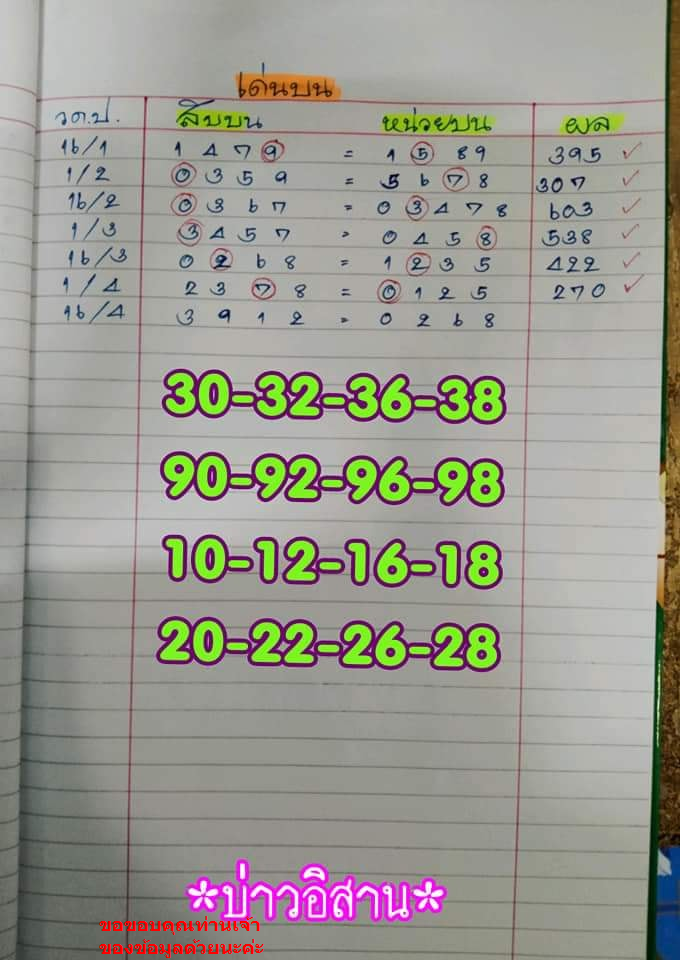 เด่นบน
ว.ด.ป. สิบบน หน่วยบน ผล
16/1 1 4 7 9 = 1 5 8 9 395 ✓
1/2 0 3 5 9 = 5 6 7 8 307 ✓
16/2 0 3 6 7 = 0 3 4 7 8 603 ✓
1/3 3 4 5 7 = 0 4 5 8 538 ✓
16/3 0 2 6 8 = 1 2 3 5 422 ✓
1/4 2 3 7 8 = 0 1 2 5 270 ✓
16/4 3 9 1 2 = 0 2 6 8
30-32-36-38
90-92-96-98
10-12-16-18
20-22-26-28
*บ่าวอิสาน*
ขอขอบคุณท่านเจ้า
ของข้อมูลด้วยนะค่ะ